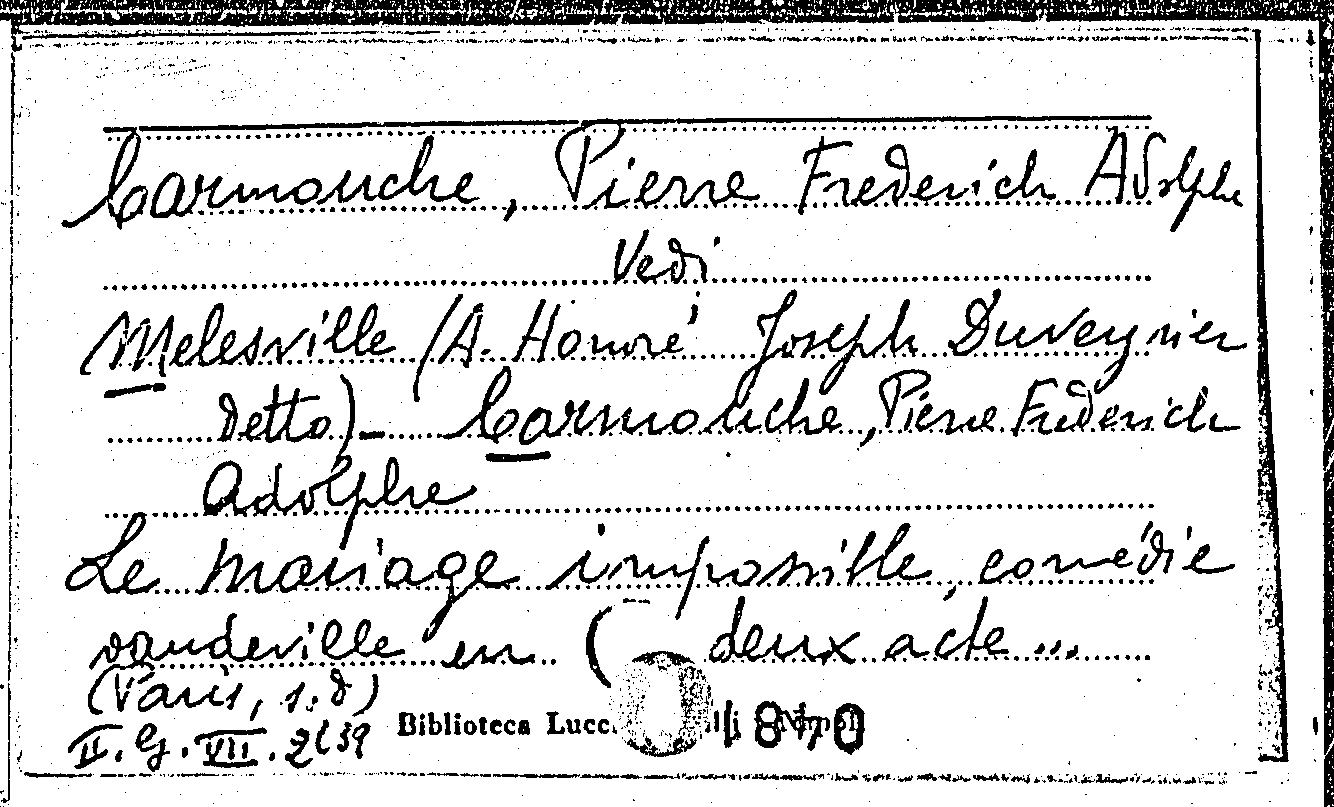 Carmouche, Pierre Frederich Adolphe
Vedi
Melesville (A. Honoré Joseph Duveyrier
detto) - Carmouche, Pierre Frederich
Adolphe
Le mariage impossible, comédie
vaudeville en ( deux acte ...
(Paris, s.d)
II. G. VII. 2(39
Biblioteca Lucc
1870